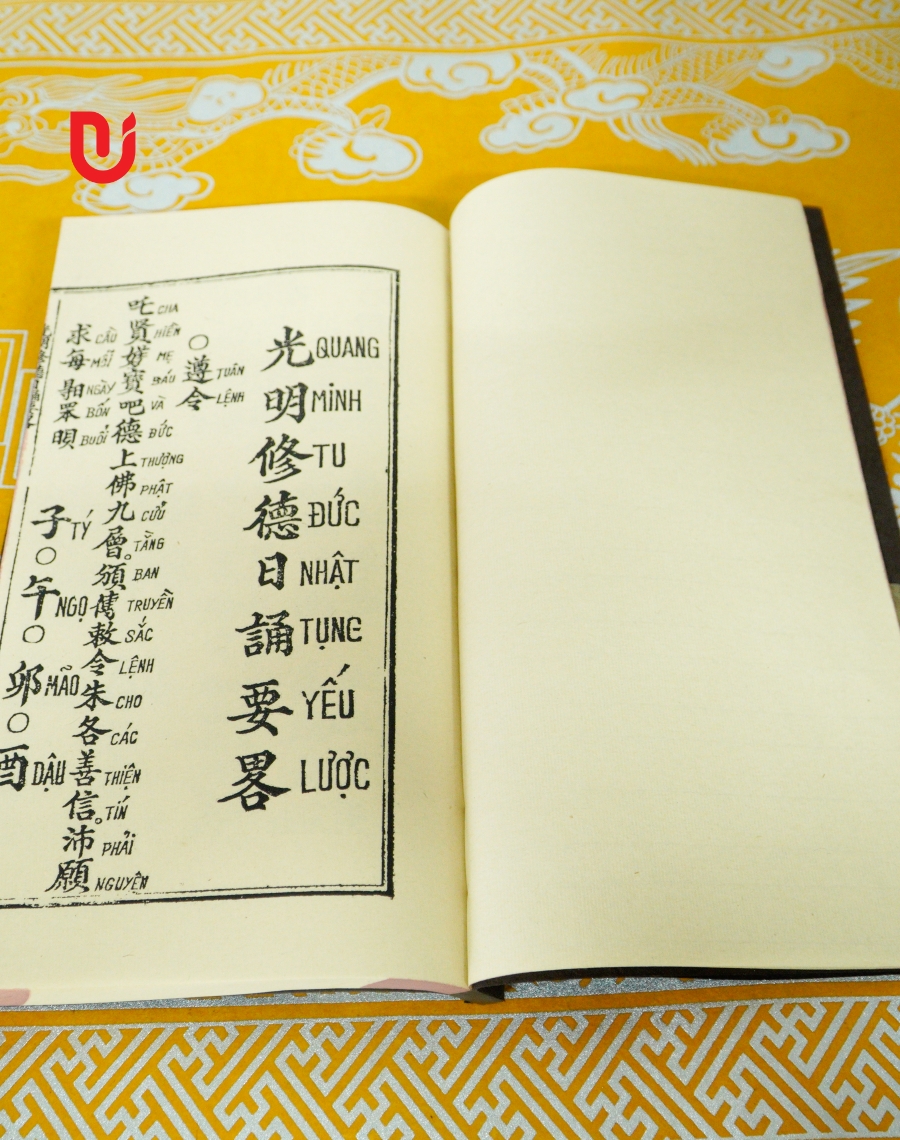 光明修德日誦要畧
QUANG MINH TU ĐỨC NHẬT TỤNG YẾU LƯỢC
〇遵令
TUÂN LỆNH
吒賢媄寶吧德上佛九層。頒傳敕令朱各善信。沛願
CHA HIỀN MẸ BÁU VÀ ĐỨC THƯỢNG PHẬT CỬU TẰNG BAN TRUYỀN SẮC LỆNH CHO CÁC THIỆN TÍN PHẢI NGUYỆN
求每罘 子〇午〇卯〇酉
CẦU MỖI NGÀY BỐN BUỔI TÝ NGỌ MÃO DẬU